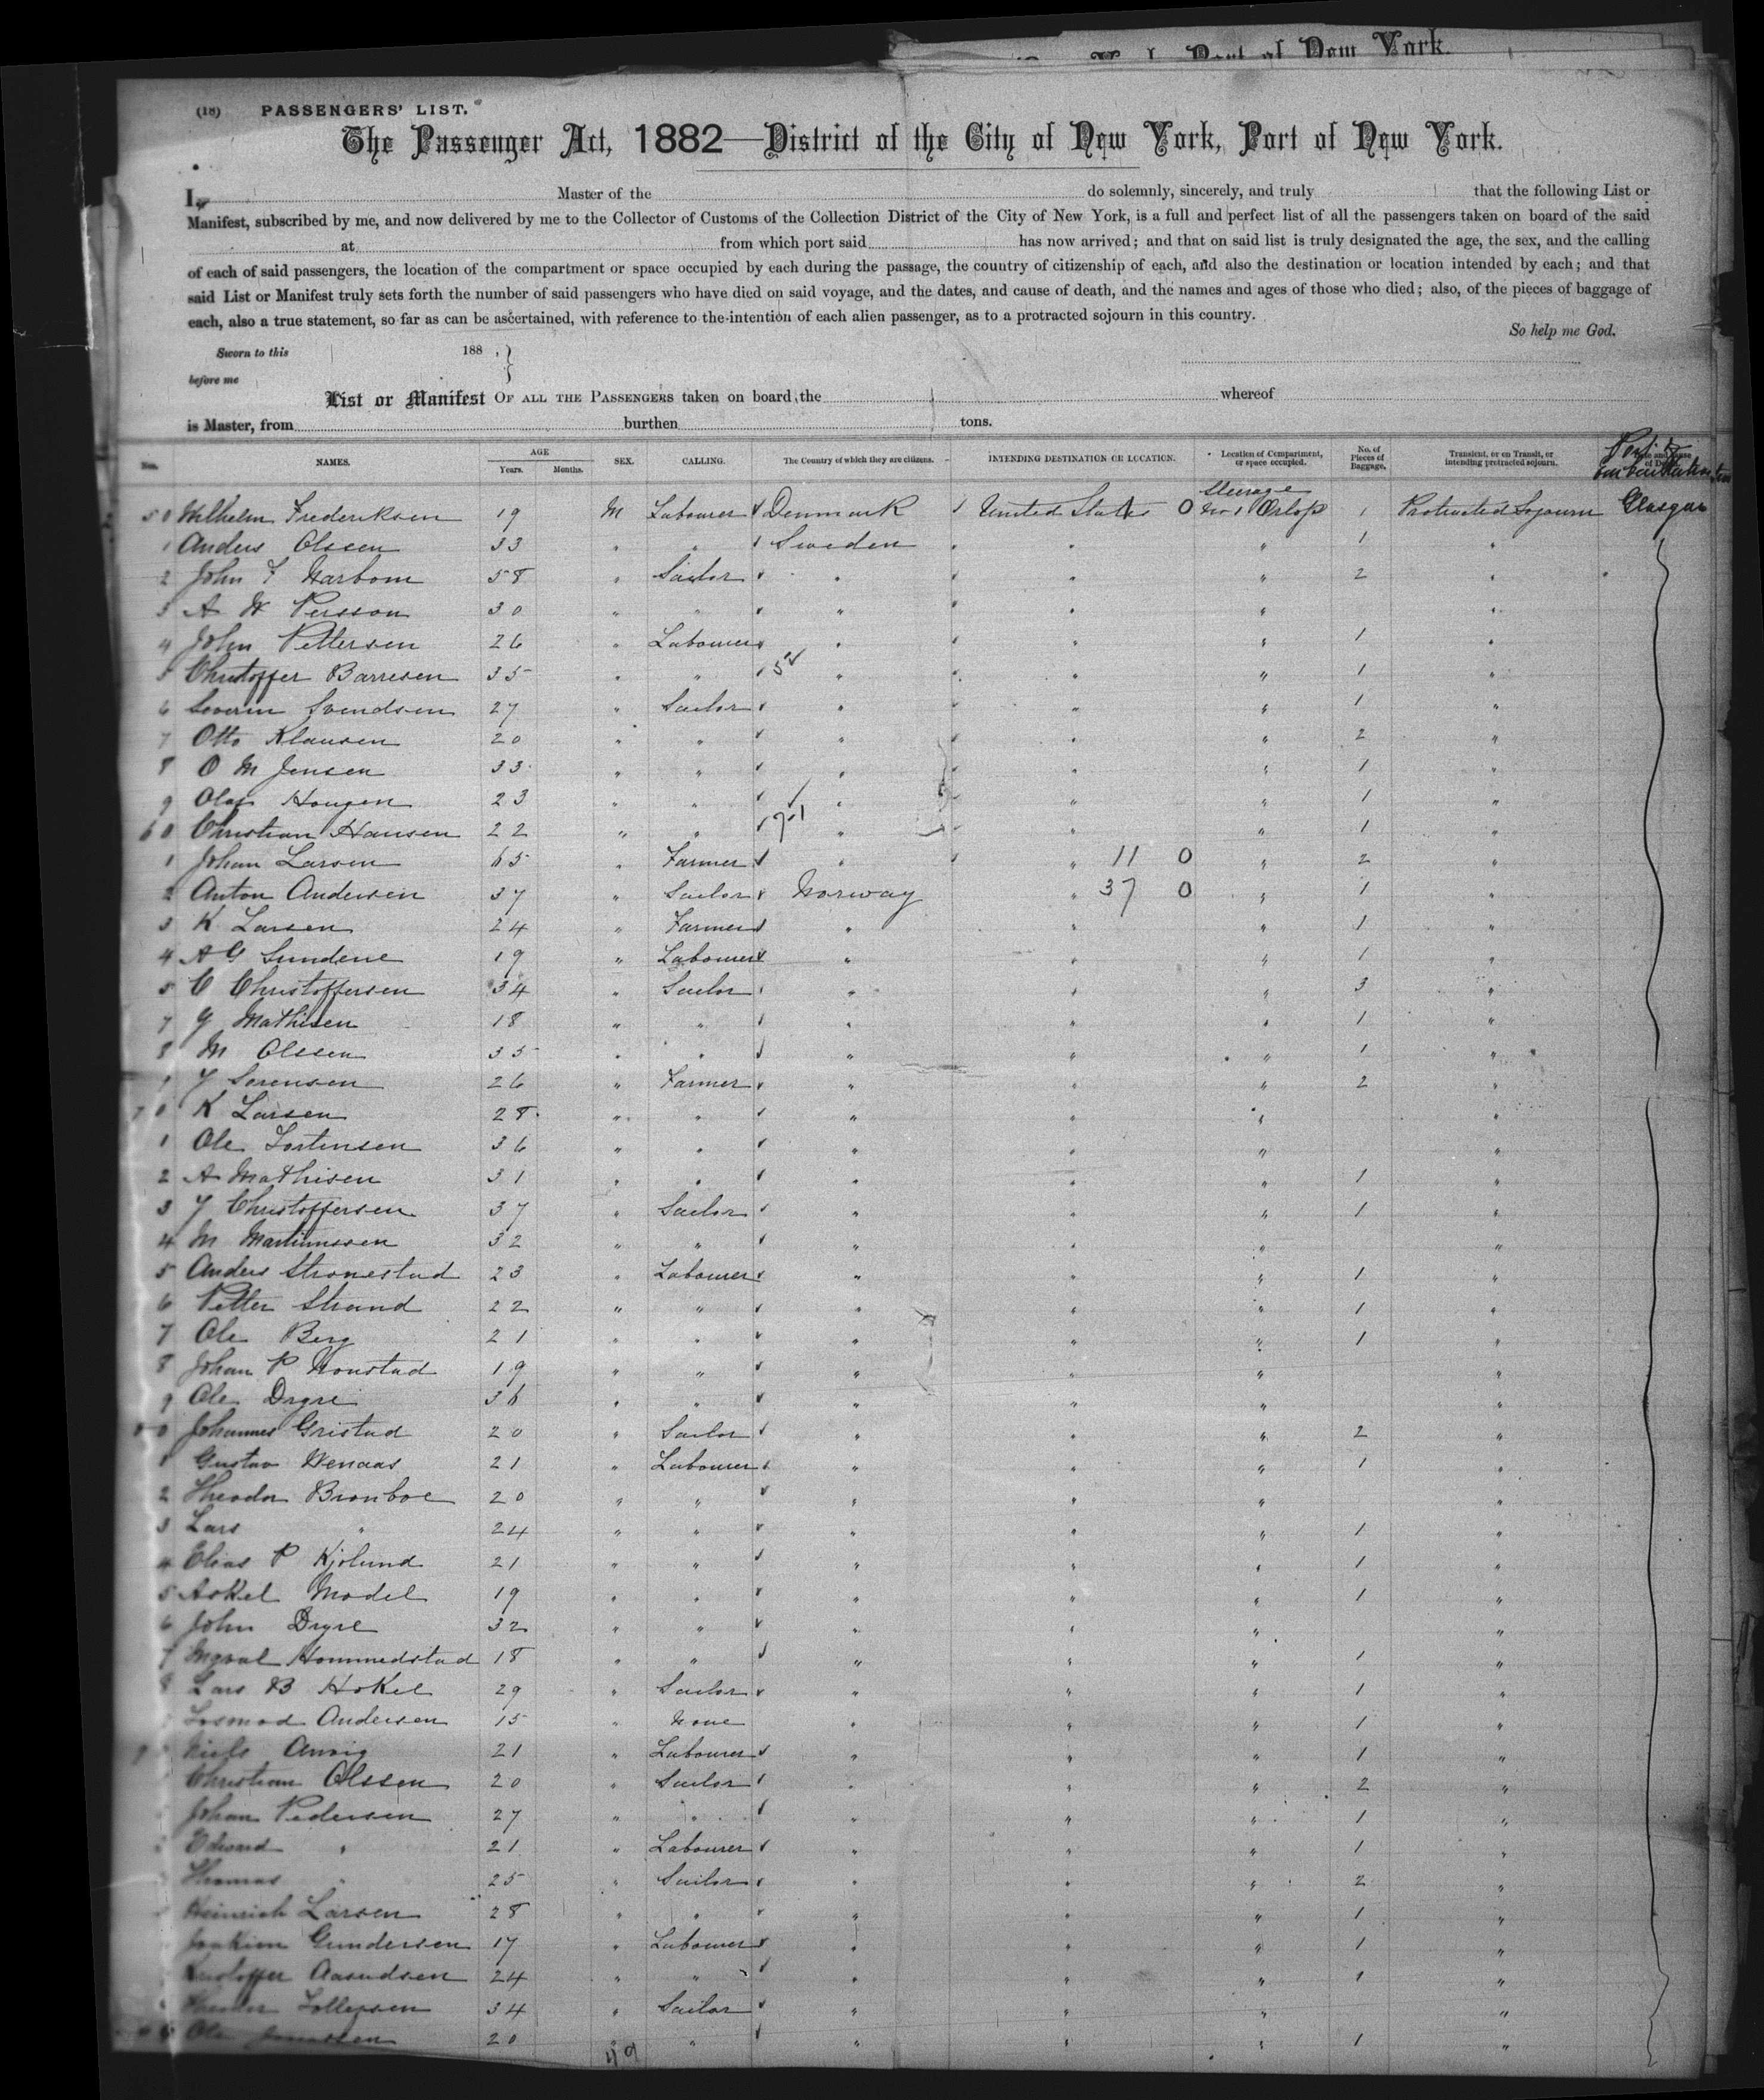 Port of New York.
(18) PASSENGERS' LIST.
The Passenger Act, 1882—District of the City of New York, Port of New York.
I, Master of the do solemnly, sincerely, and truly that the following List or
Manifest, subscribed by me, and now delivered by me to the Collector of Customs of the Collection District of the City of New York, is a full and perfect list of all the passengers taken on board of the said
at from which port said has now arrived; and that on said list is truly designated the age, the sex, and the calling
of each of said passengers, the location of the compartment or space occupied by each during the passage, the country of citizenship of each, and also the destination or location intended by each; and that
said List or Manifest truly sets forth the number of said passengers who have died on said voyage, and the dates, and cause of death, and the names and ages of those who died; also, of the pieces of baggage of
each, also a true statement, so far as can be ascertained, with reference to the intention of each alien passenger, as to a protracted sojourn in this country.
So help me God.
Sworn to this 188 ,
before me
List or Manifest OF ALL THE PASSENGERS taken on board the whereof
is Master, from burthen tons.
Nos. NAMES. AGE Years. Months. SEX. CALLING. The Country of which they are citizens. INTENDING DESTINATION OR LOCATION. Location of Compartment, or space occupied. No. of Pieces of Baggage. Transient, or on Transit, or intending protracted sojourn. Port of Embarkation
50 Wilhelm Frederiksen 19 M Labourer Denmark United States 0 Steerage No 1 Orlop 1 Protracted Sojourn Glasgow
1 Anders Olssen 33 " " Sweden " " 1 "
2 John F 58 " Sailor " " " 2 "
3 A W Persson 30 " " " " " "
4 John Pettersen 26 " Labourer " " " 1 "
5 Christoffer Barresen 35 " " " " " 1 "
6 Severin Svendsen 27 " Sailor " " " 1 "
7 Otto Klausen 20 " " " " " 2 "
8 O M Jensen 33 " " " " " 1 "
9 Olaf Hougen 23 " " " " " 1 "
60 Christian Hansen 22 " " " " " 1 "
1 Johan Larsen 65 " Farmer " " 11 0 " 2 "
2 Anton Andersen 37 " Sailor Norway " 37 0 " 1 "
3 K Larsen 24 " Farmer " " " 1 "
4 A G Sundene 19 " Labourer " " " 1 "
5 C Christoffersen 34 " Sailor " " " 3 "
7 G Mathisen 18 " " " " " 1 "
8 M Olssen 35 " " " " " 1 "
9 J Sorensen 26 " Farmer " " " 2 "
70 K Larsen 28 " " " " " "
1 Ole Tostensen 36 " " " " " "
2 A Mathisen 31 " " " " " 1 "
3 J Christoffersen 37 " Sailor " " " 1 "
4 M Martinussen 32 " " " " " "
5 Anders Stronestad 23 " Labourer " " " 1 "
6 Petter Strand 22 " " " " " 1 "
7 Ole Berg 21 " " " " " 1 "
8 Johan P 19 " " " " " "
9 Ole Drgre 36 " " " " " "
80 Johannes Gristad 20 " Sailor " " " 2 "
1 Gustav Wenaas 21 " Labourer " " " 1 "
2 Theodor Bronboe 20 " " " " " "
3 Lars " 24 " " " " " 1 "
4 Elias P Kjolund 21 " " " " " 1 "
5 Askel Model 19 " " " " " 1 "
6 John Drgre 32 " " " " " "
7 Hommedstad 18 " " " " " 1 "
8 Lars B Hokel 29 " Sailor " " " 1 "
Andersen 15 " None " " " 1 "
9 Niels 21 " Labourer " " " 1 "
Christian Olssen 20 " Sailor " " " 2 "
Johan Pedersen 27 " " " " " 1 "
Edward " 21 " Labourer " " " 1 "
Thomas " 25 " Sailor " " " 2 "
Heinrich Larsen 28 " " " " " 1 "
Joakim Gundersen 17 " Labourer " " " 1 "
Kristoffer Aasmdsen 24 " " " " " 1 "
Tollefsen 34 " Sailor " " " "
Ole 20 " " " " " 1 "
49